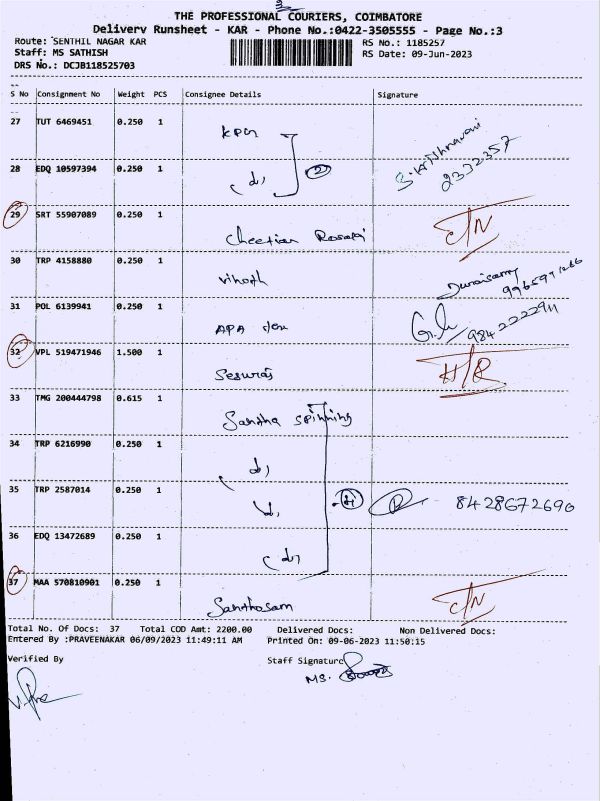 THE PROFESSIONAL COURIERS, COIMBATORE
Delivery Runsheet - KAR - Phone No.:0422-3505555 - Page No.:3
Route: SENTHIL NAGAR KAR RS No.: 1185257
Staff: MS SATHISH RS Date: 09-Jun-2023
DRS No.: DCJB118525703
S No Consignment No Weight PCS Consignee Details Signature
27 TUT 6469451 0.250 1 KPM
2332357
28 EDQ 10597394 0.250 1 (d) 2
29 SRT 55907089 0.250 1 C/N
30 TRP 4158880 0.250 1 Vinoth Duraisamy
31 POL 6139941 0.250 1 APA 9842222911
32 VPL 519471946 1.500 1 Sesuraj H/R
33 TMG 200444798 0.615 1 Santha Spinning
34 TRP 6216990 0.250 1 (d)
35 TRP 2587014 0.250 1 (d) 4 8428672690
36 EDQ 13472689 0.250 1 (d)
37 MAA 570810901 0.250 1 Santhosam C/N
Total No. Of Docs: 37 Total COD Amt: 2200.00 Delivered Docs: Non Delivered Docs:
Entered By :PRAVEENAKAR 06/09/2023 11:49:11 AM Printed On: 09-06-2023 11:50:15
Verified By Staff Signature
MS.